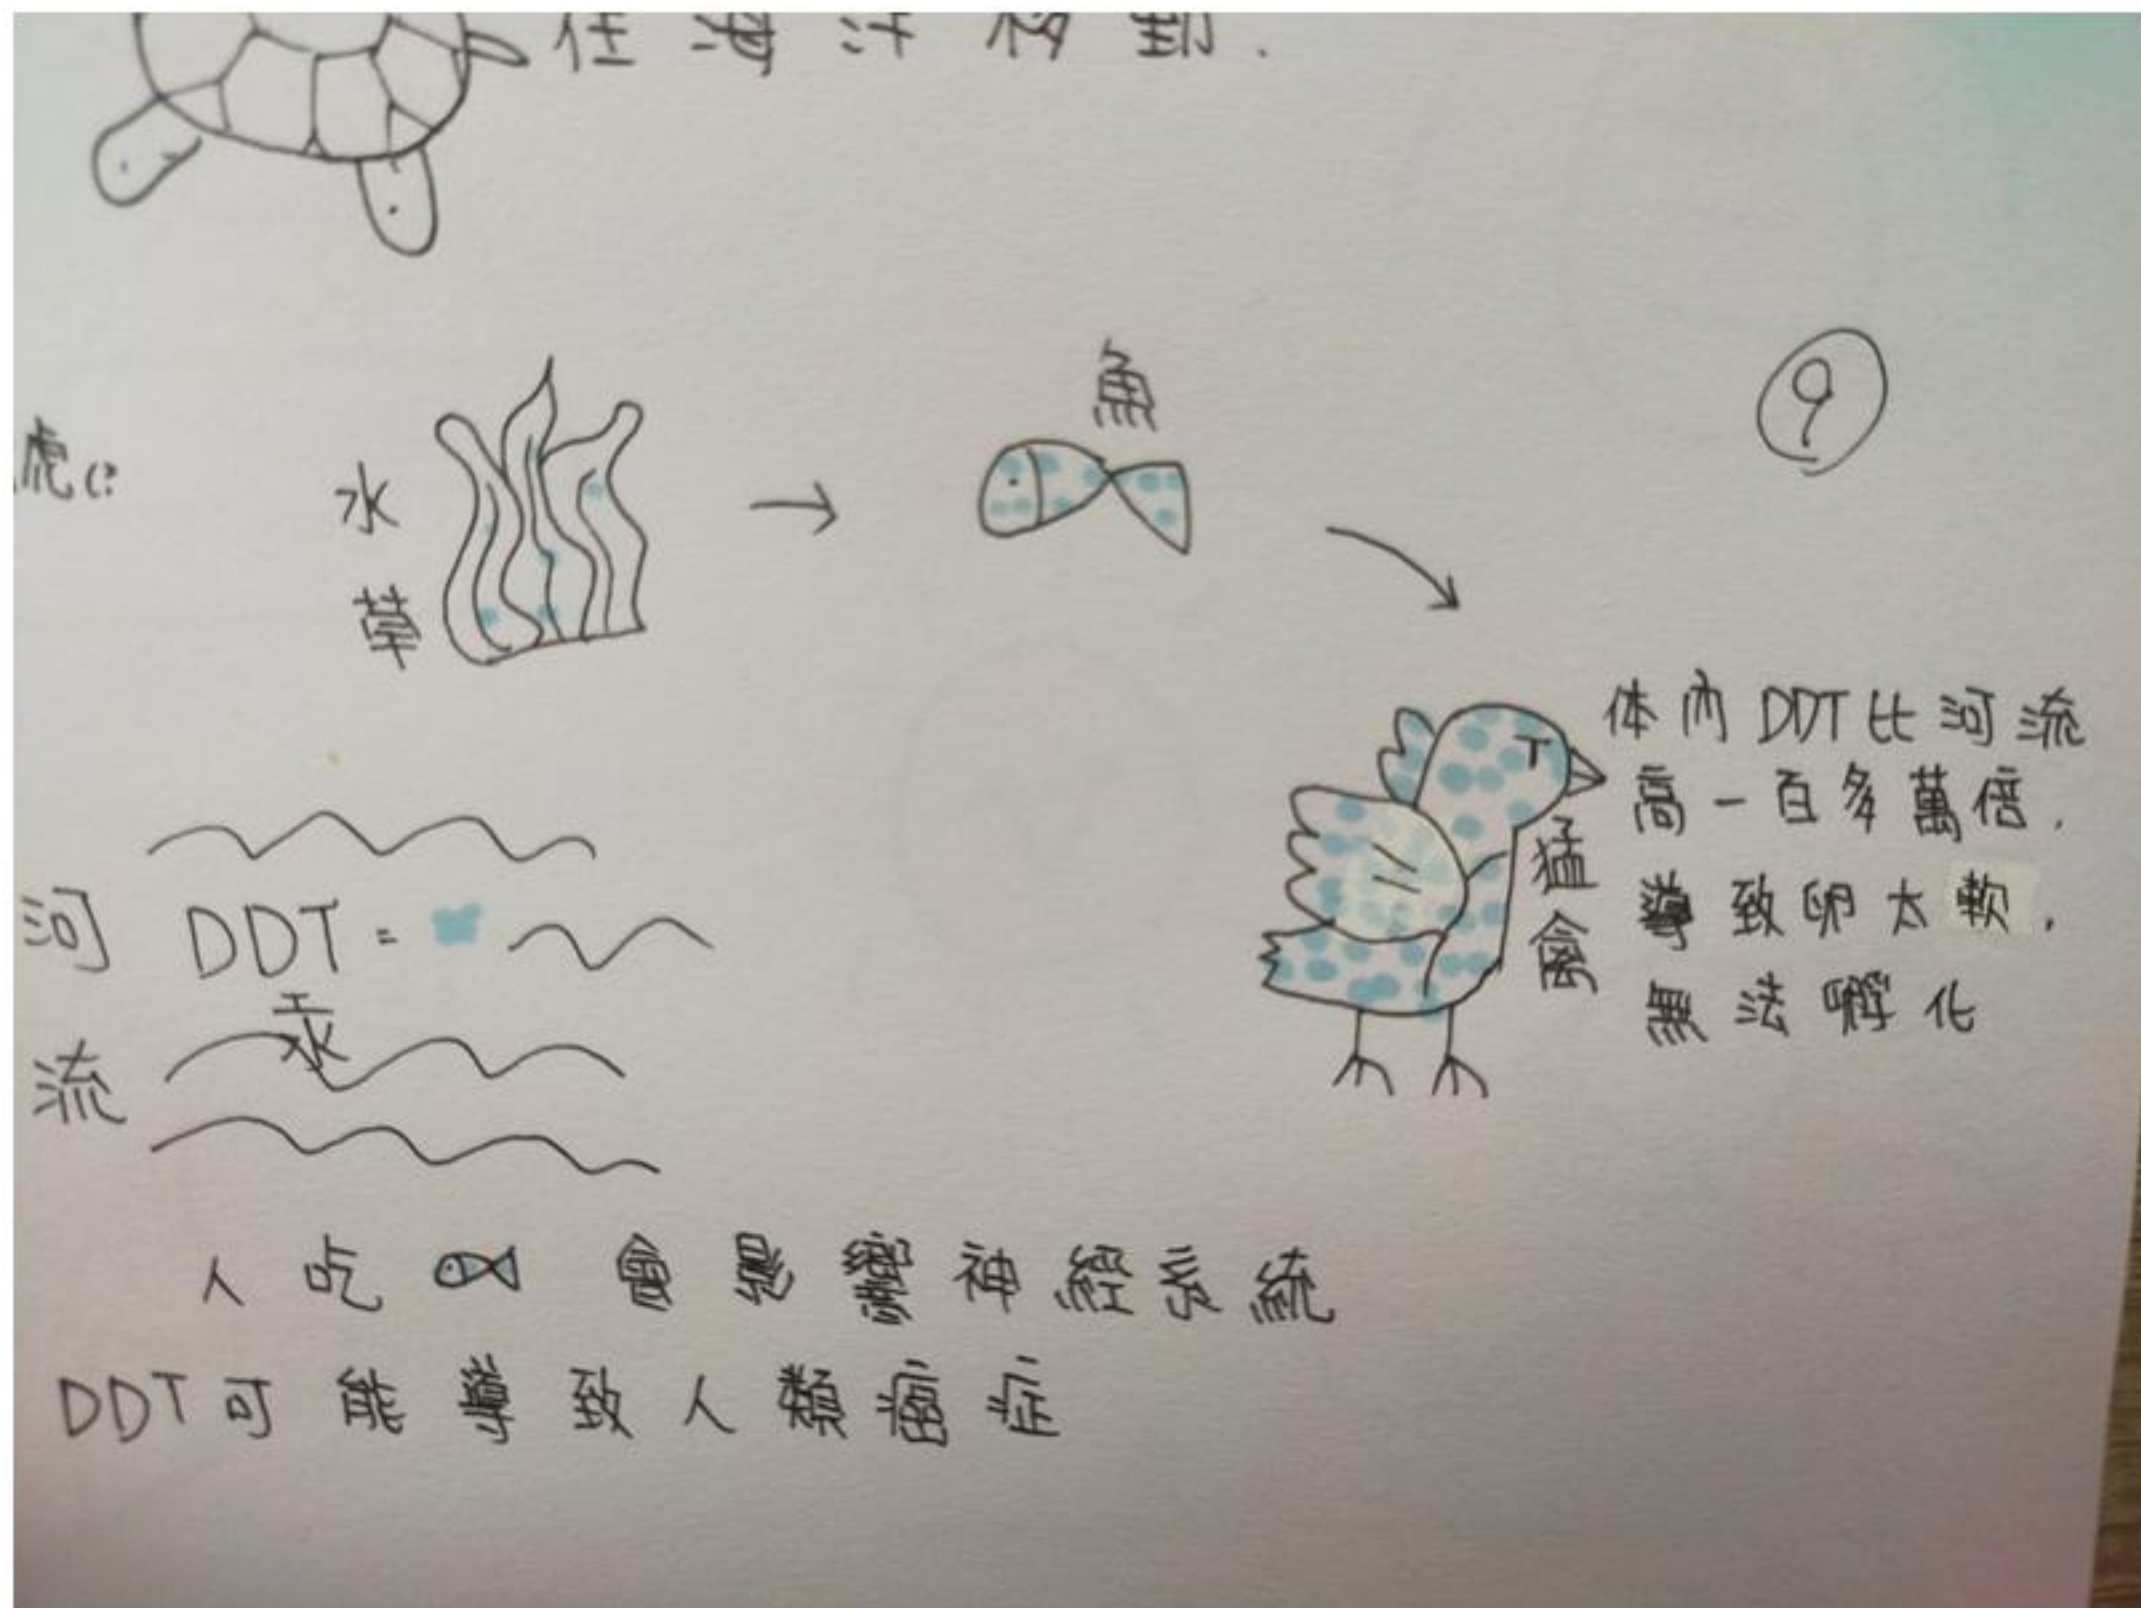 在海洋移動.
魚
9
水草
体內DDT比河流
高一百多萬倍.
導致卵太軟.
無法孵化
猛禽
河流
DDT=
汞
人吃 會 神經系統
DDT可能導致人類